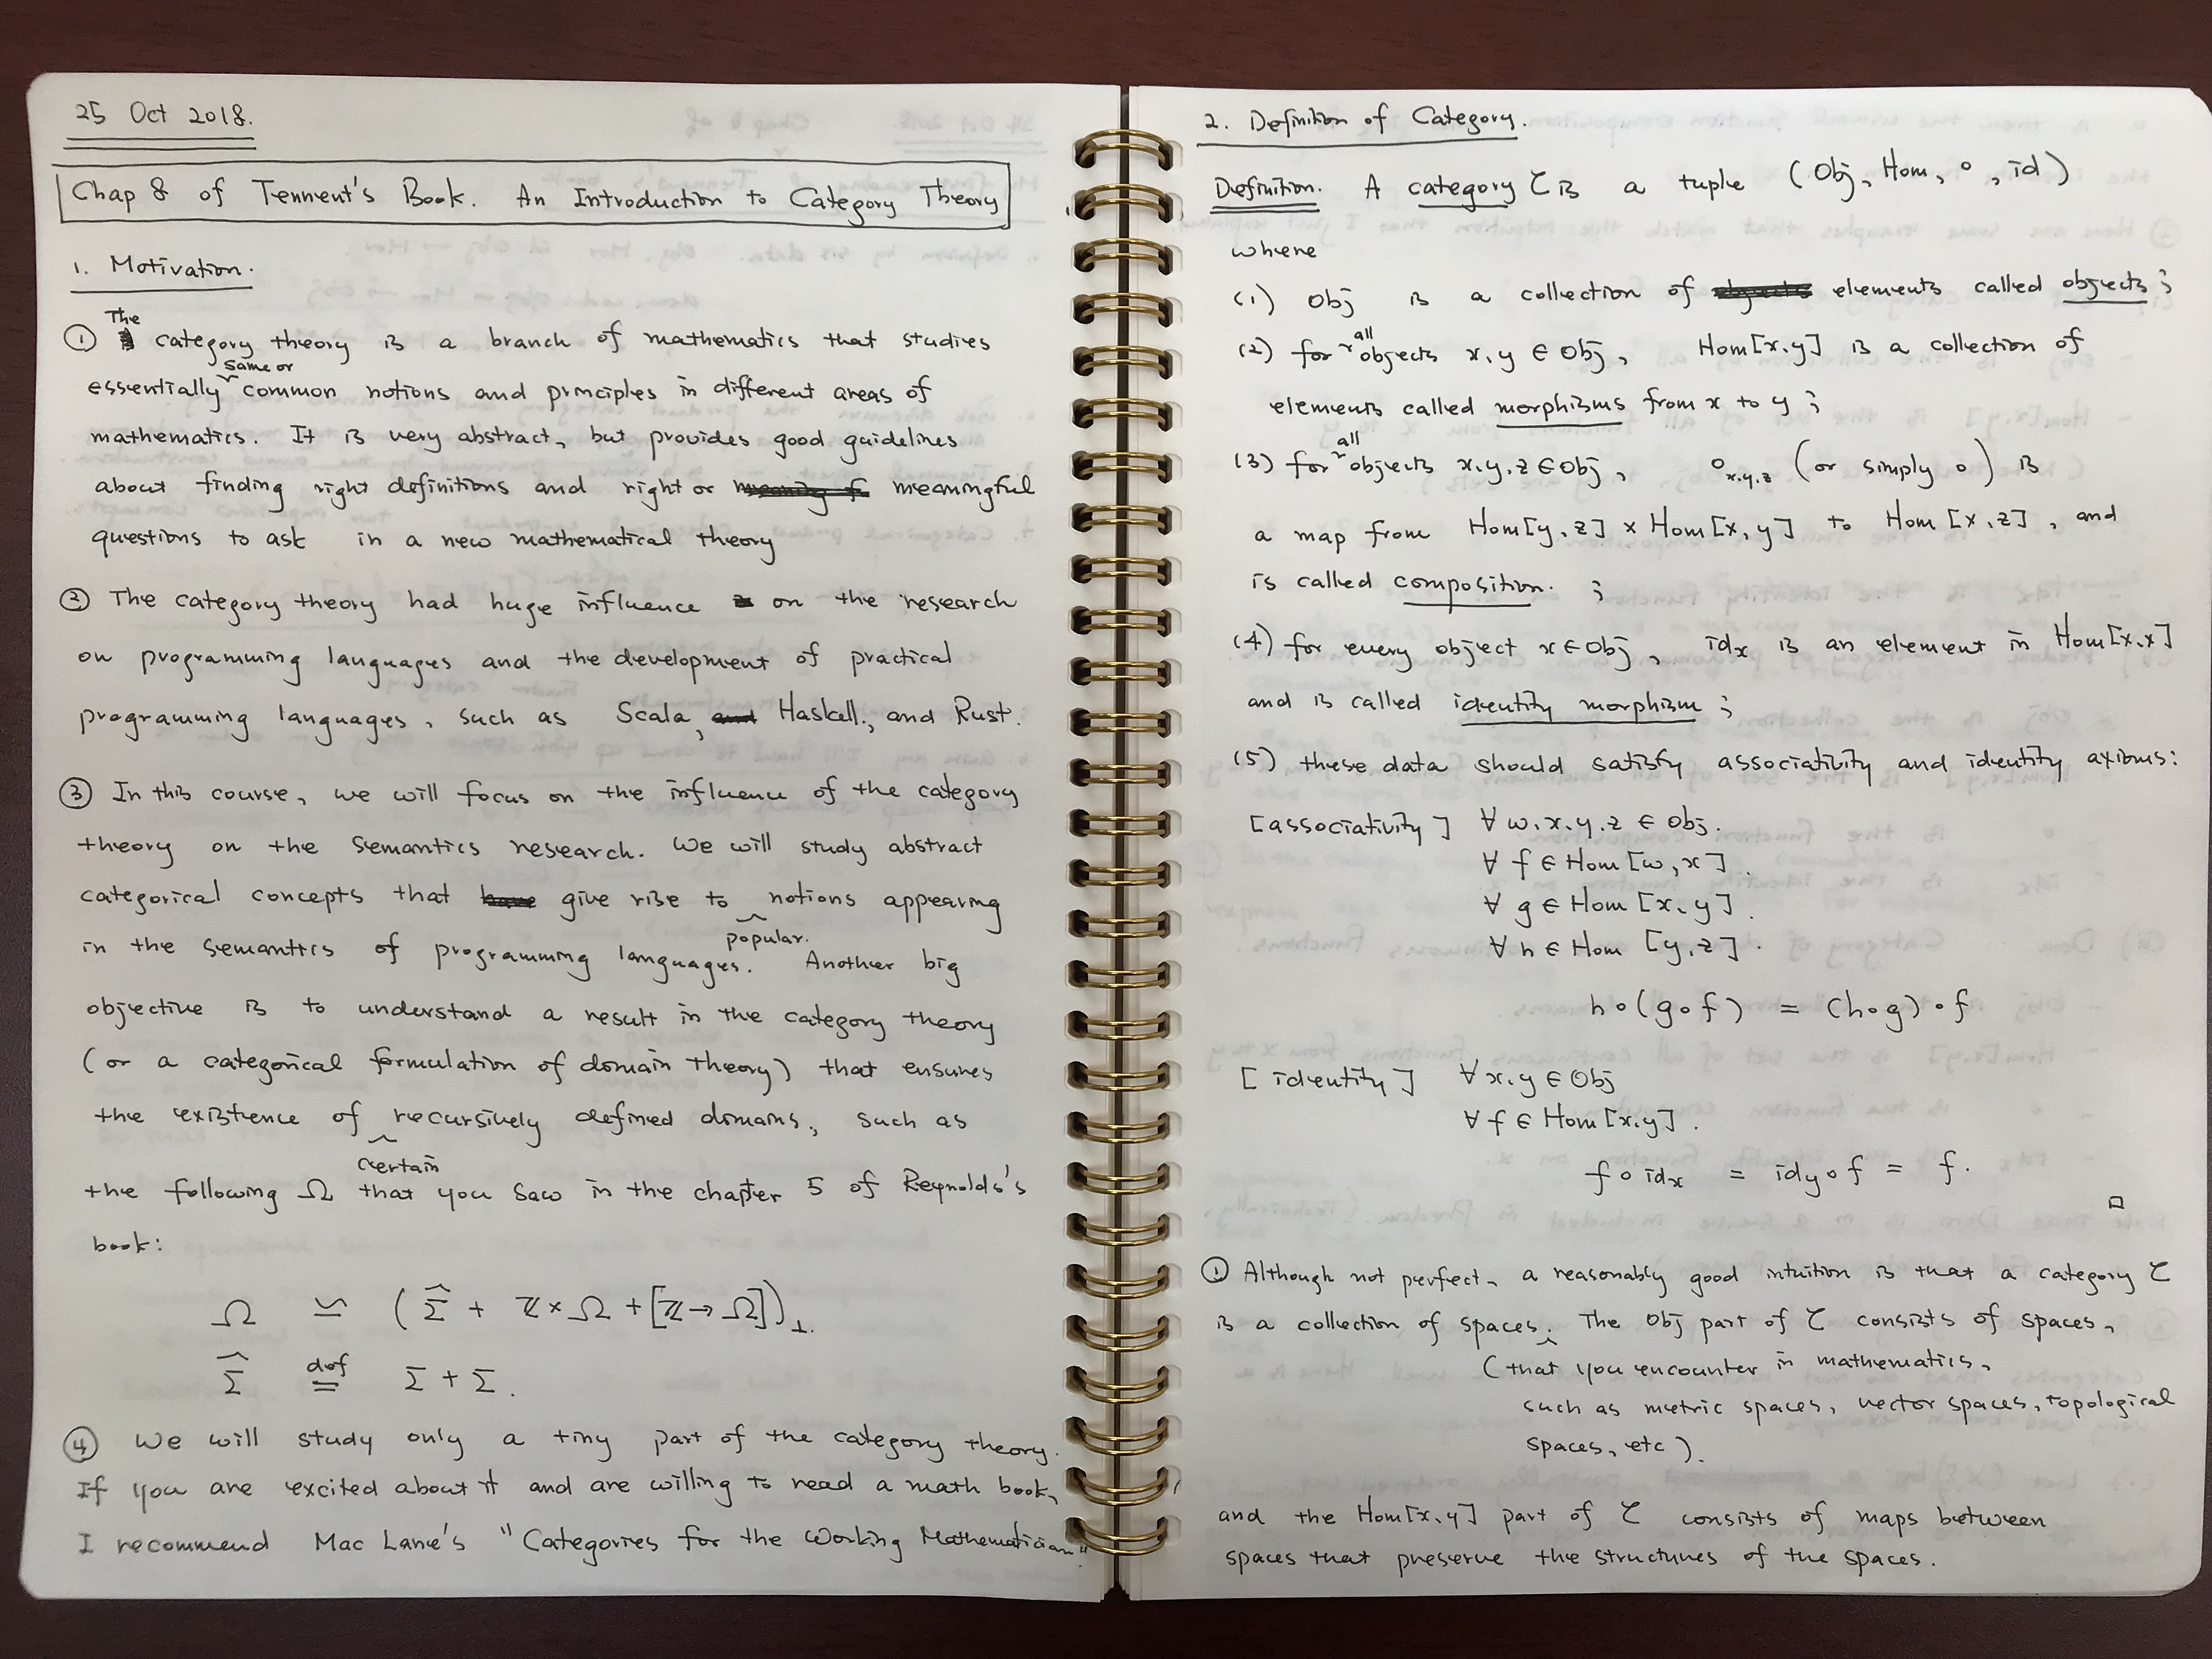 25 Oct 2018.
Chap 8 of Tennent's Book. An Introduction to Category Theory
1. Motivation.
① The category theory is a branch of mathematics that studies
essentially same or common notions and principles in different areas of
mathematics. It is very abstract, but provides good guidelines
about finding right definitions and right or meaningful
questions to ask in a new mathematical theory
② The category theory had huge influence on the research
on programming languages and the development of practical
programming languages, such as Scala, Haskell, and Rust.
③ In this course, we will focus on the influence of the category
theory on the semantics research. We will study abstract
categorical concepts that give rise to popular notions appearing
in the semantics of programming languages. Another big
objective is to understand a result in the category theory
(or a categorical formulation of domain theory) that ensures
the existence of certain recursively defined domains, such as
the following Ω that you saw in the chapter 5 of Reynolds's
book:
Ω ≃ (Σ̂ + ℤ × Ω + [ℤ → Ω])⊥.
Σ̂ def= Σ + Σ.
④ We will study only a tiny part of the category theory.
If you are excited about it and are willing to read a math book,
I recommend Mac Lane's "Categories for the Working Mathematician"
2. Definition of Category.
Definition. A category C is a tuple (Obj, Hom, ∘, id)
where
(1) Obj is a collection of elements called objects;
(2) for all objects x, y ∈ Obj, Hom[x,y] is a collection of
elements called morphisms from x to y;
(3) for all objects x,y,z ∈ Obj, ∘x,y,z (or simply ∘) is
a map from Hom[y,z] × Hom[x,y] to Hom[x,z], and
is called composition. ;
(4) for every object x ∈ Obj, idx is an element in Hom[x,x]
and is called identity morphism;
(5) these data should satisfy associativity and identity axioms:
[associativity] ∀ w,x,y,z ∈ Obj.
∀ f ∈ Hom[w,x].
∀ g ∈ Hom[x,y].
∀ h ∈ Hom[y,z].
h∘(g∘f) = (h∘g)∘f
[identity] ∀ x,y ∈ Obj
∀ f ∈ Hom[x,y].
f∘idx = idy∘f = f.
□
① Although not perfect, a reasonably good intuition is that a category C
is a collection of spaces. The Obj part of C consists of spaces,
(that you encounter in mathematics,
such as metric spaces, vector spaces, topological
spaces, etc).
and the Hom[x,y] part of C consists of maps between
spaces that preserve the structures of the spaces.